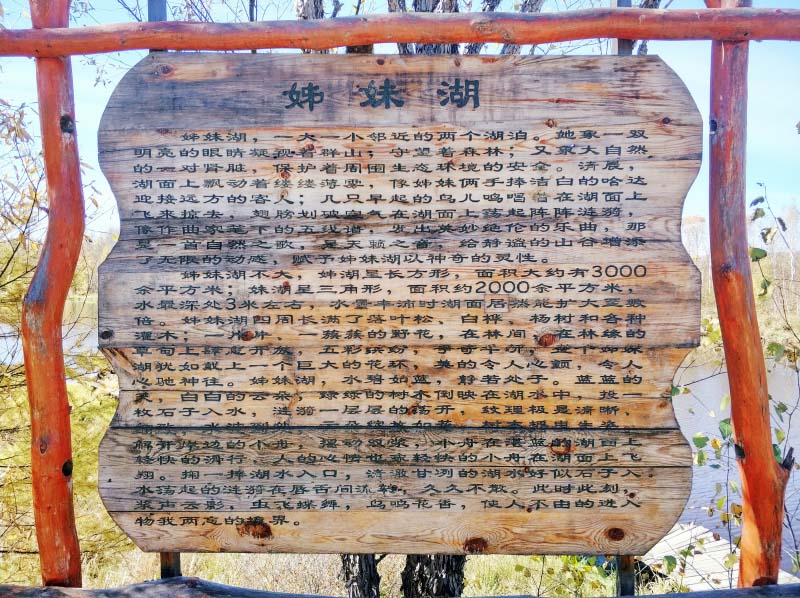 姊妹湖
姊妹湖，一大一小邻近的两个湖泊。她象一双
明亮的眼睛凝视着群山；守望着森林；又象大自然
的一对肾脏，保护着周围生态环境的安全。清晨，
湖面上飘动着缕缕薄雾，像姊妹两手捧洁白的哈达
迎接远方的客人；几只早起的鸟儿鸣唱着在湖面上
飞来掠去，翅膀划破空气在湖面上荡起阵阵涟漪，
像作曲家笔下的五线谱，发出美妙绝伦的乐曲，那
是一首自然之歌，是天籁之音，给静谧的山谷增添
了无限的动感，赋予姊妹湖以神奇的灵性。
姊妹湖不大，姊湖呈长方形，面积大约有3000
余平方米；妹湖呈三角形，面积约2000余平方米，
水最深处3米左右，水量丰沛时湖面居然能扩大至数
倍。姊妹湖四周长满了落叶松，白桦，杨树和各种
灌木；一片片，一簇簇的野花，在林间，在林缘的
草甸上肆意开放，五彩缤纷，
湖犹如戴上一个巨大的花环，美的令人心颤，令人
心驰神往。姊妹湖，水碧如蓝，静若处子。蓝蓝的
天，白白的云朵，绿绿的树木倒映在湖水中，投一
枚石子入水，涟漪一层层的荡开，纹理极是清晰，
解开岸边的小舟，摇动双桨，小舟在湛蓝的湖面上
轻快的滑行，人的心情也象轻快的小舟在湖面上飞
翔。掬一捧湖水入口，清澈甘冽的湖水好似石子入
水荡起的涟漪在唇舌间流转，久久不散。此时此刻，
桨声云影，虫飞蝶舞，鸟鸣花香，使人不由的进入
物我两忘的境界。